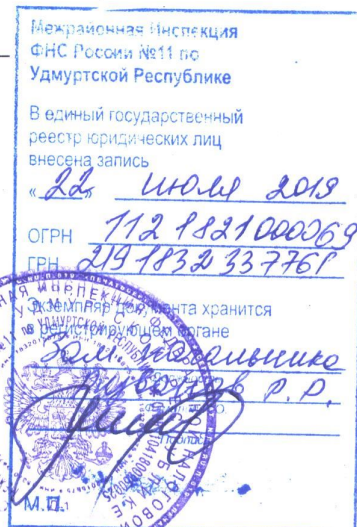 Межрайонная Инспекция
ФНС России №11 по
Удмуртской Республике
В единый государственный
реестр юридических лиц
внесена запись
«22» июля 2019
ОГРН 1121821000069
ГРН 2191832337761
Экземпляр документа хранится
в регистрирующем органе
Зам. начальника
Р. Р.
М.П.